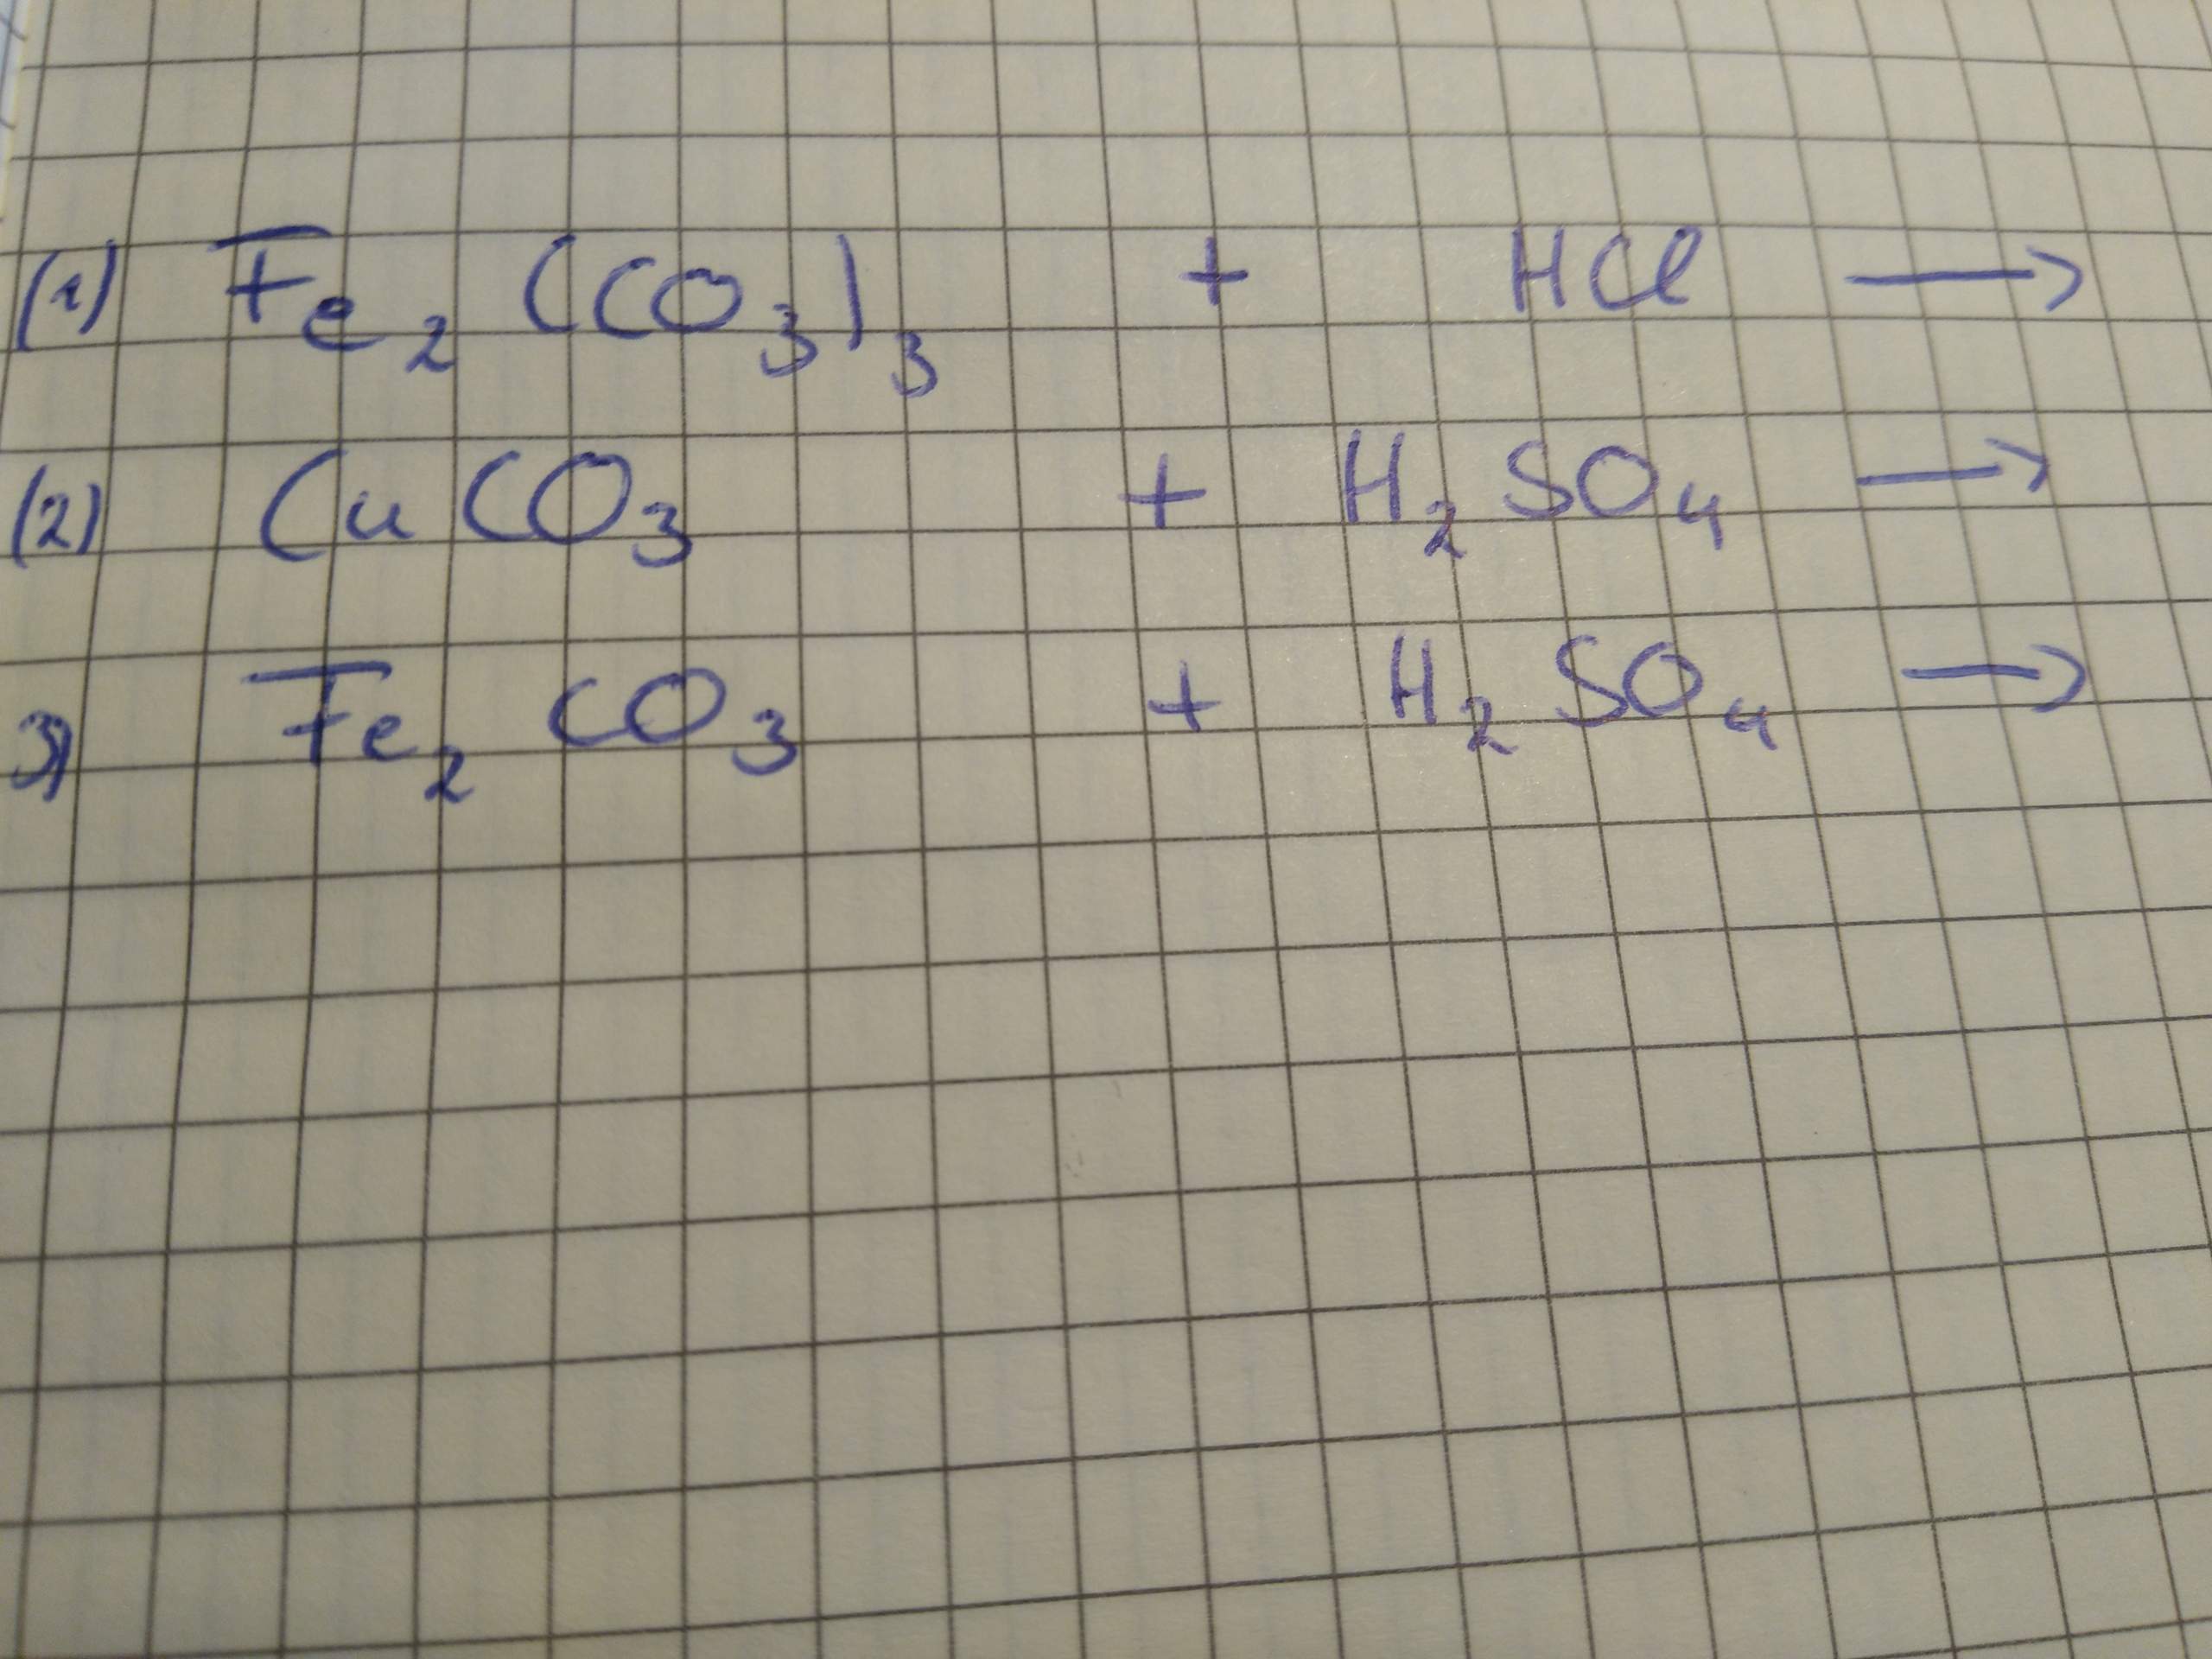 (1) Fe₂(CO₃)₃ + HCl →
(2) CuCO₃ + H₂SO₄ →
3) Fe₂CO₃ + H₂SO₄ →